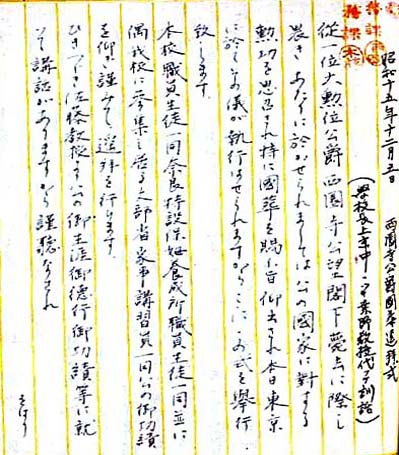 昭和十五年十二月五日　西園寺公爵国葬遥拝式
(学校長上京中ニツキ 教授代テ訓話)
従一位大勲位公爵西園寺公望閣下薨去に際し
畏きあたりに於かせられましては公の國家に對する
勲功を思召され特に國葬を賜ふ旨仰出され本日東京
に於てその儀が執行はせられますからここに の式を舉行
致します。
本校職員生徒一同奈良特設保姆養成所職員生徒一同並に
偶我校に参集し居る文部省家事講習員一同公の御功績
を仰ぎ謹みて遥拝を行ひます。
ひきつづき佐藤教授より公の御生涯御徳行御功績等に就
て講話がありますから謹聴なされ